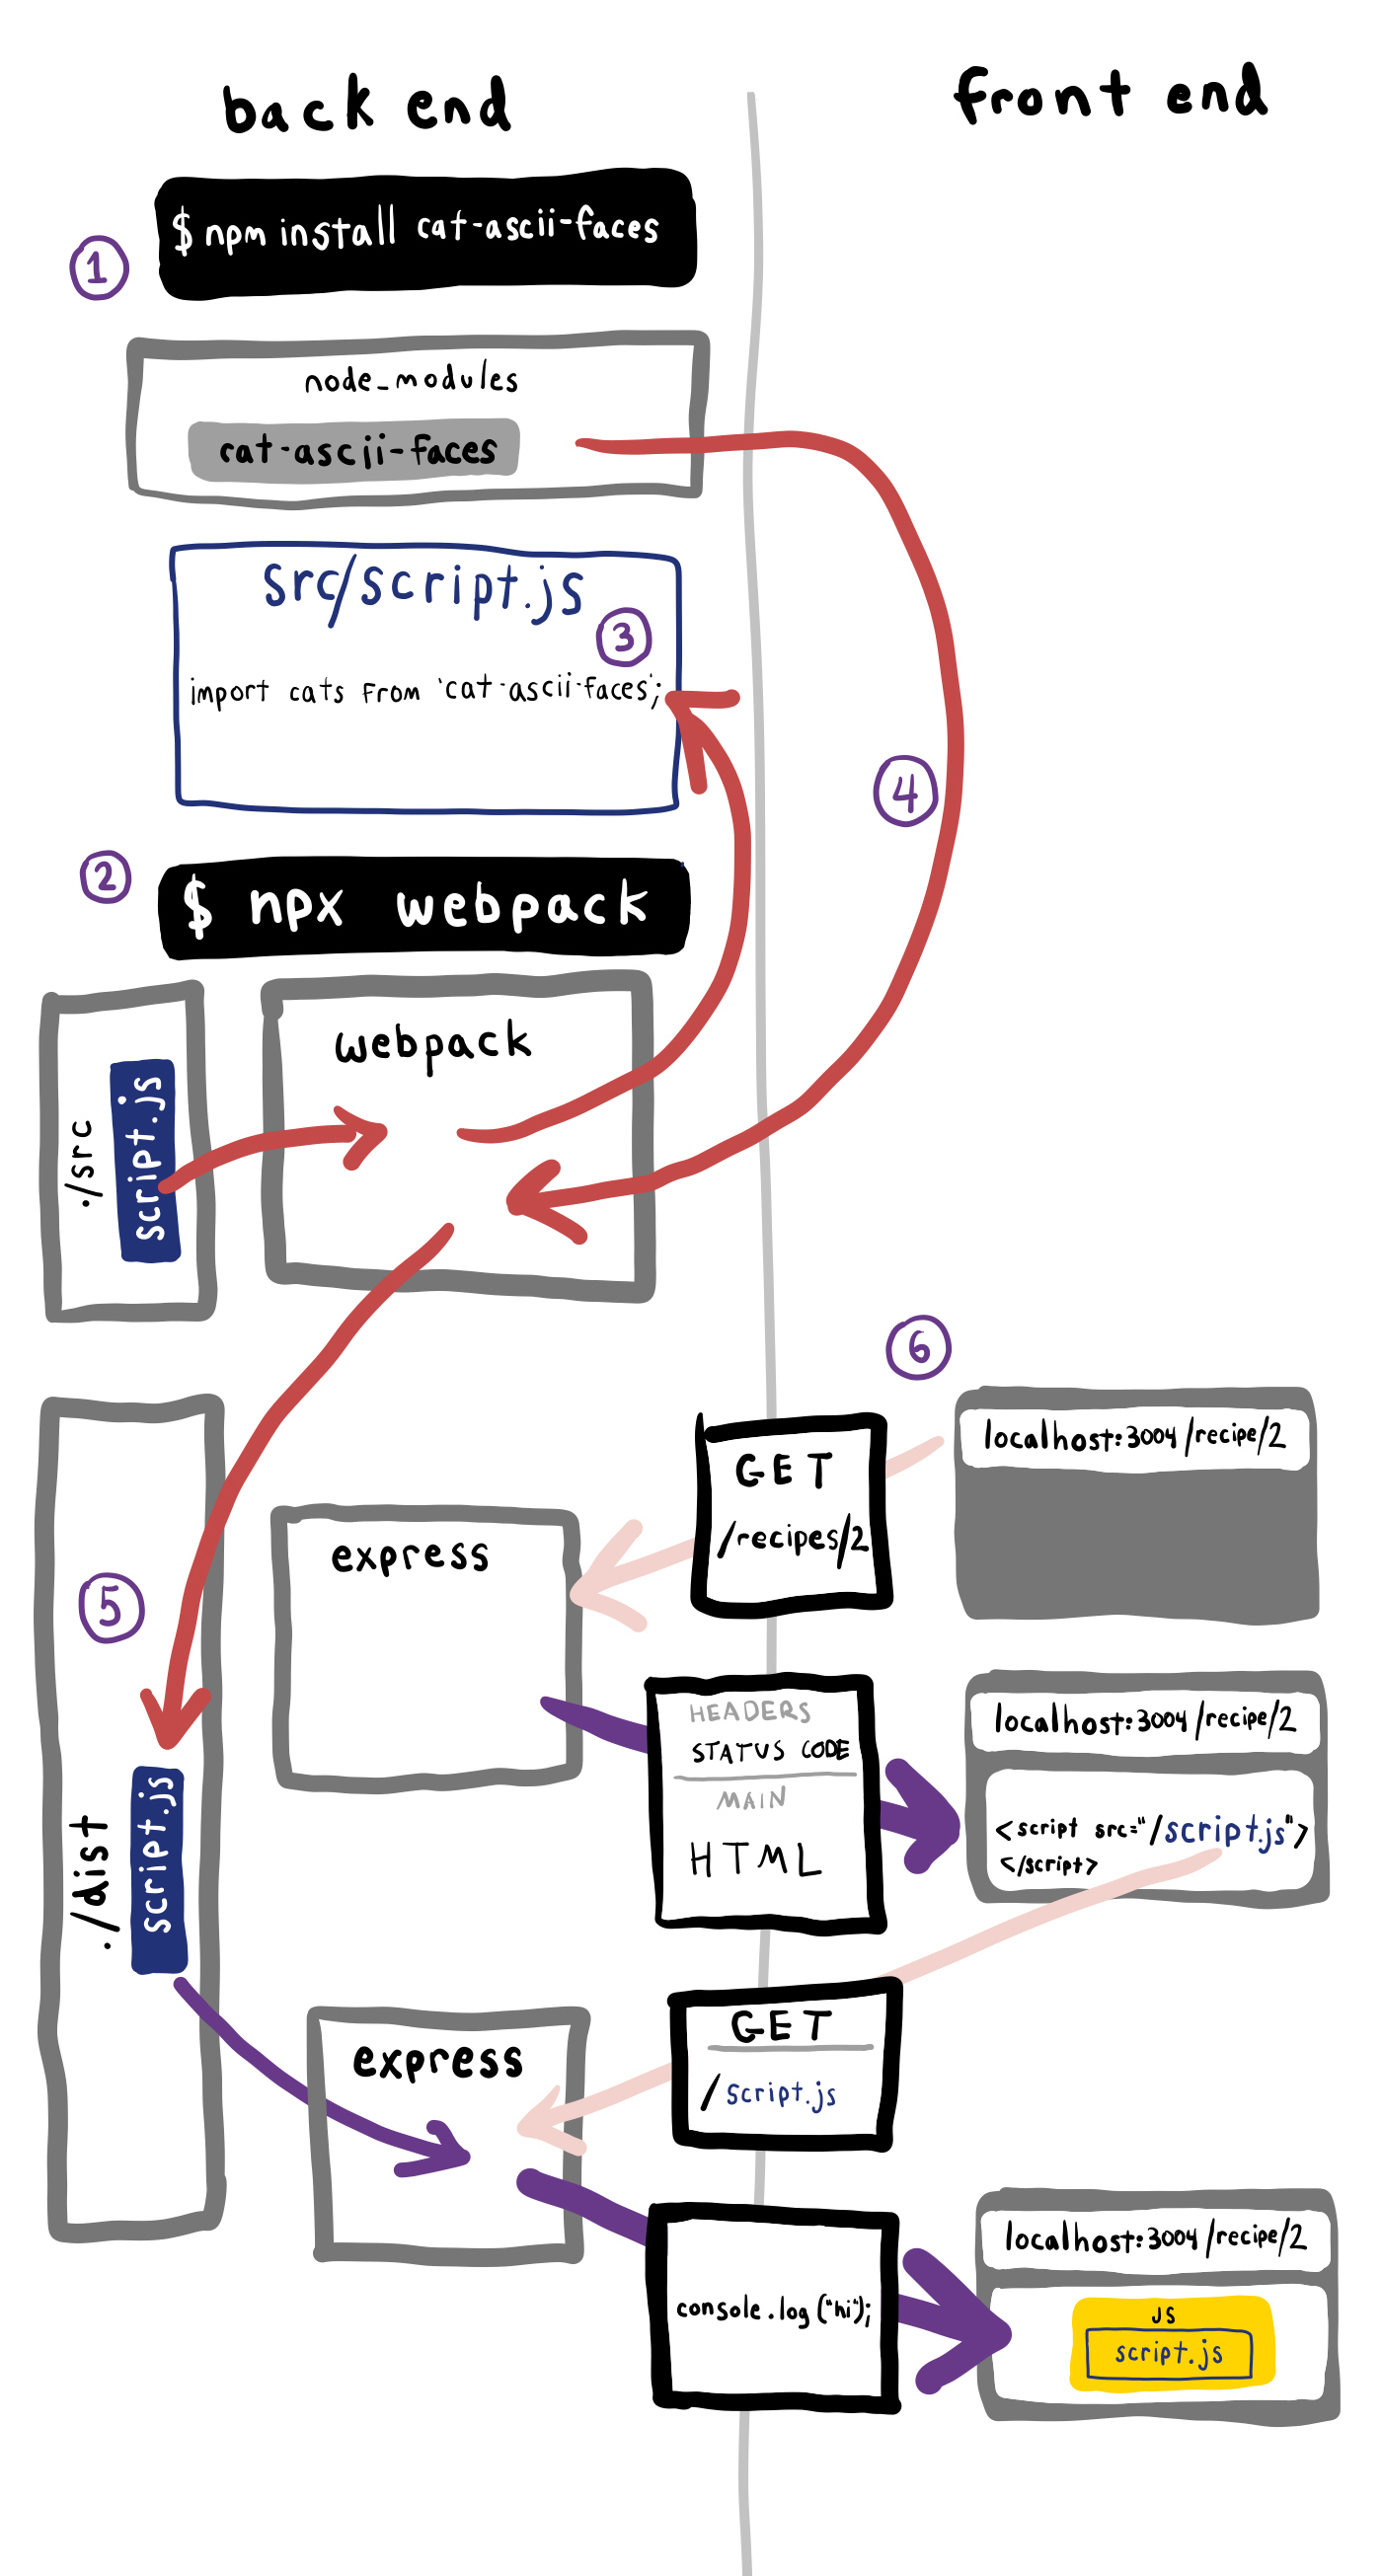 back end
front end
$ npm install cat-ascii-faces
1
node_modules
cat-ascii-faces
src/script.js
3
import cats from 'cat-ascii-faces';
4
2
$ npx webpack
webpack
./src
script.js
6
localhost:3004/recipe/2
GET
/recipes/2
express
5
HEADERS
STATUS CODE
MAIN
HTML
localhost:3004/recipe/2
<script src="/script.js">
</script>
./dist
script.js
GET
/script.js
express
console.log("hi");
localhost:3004/recipe/2
JS
script.js